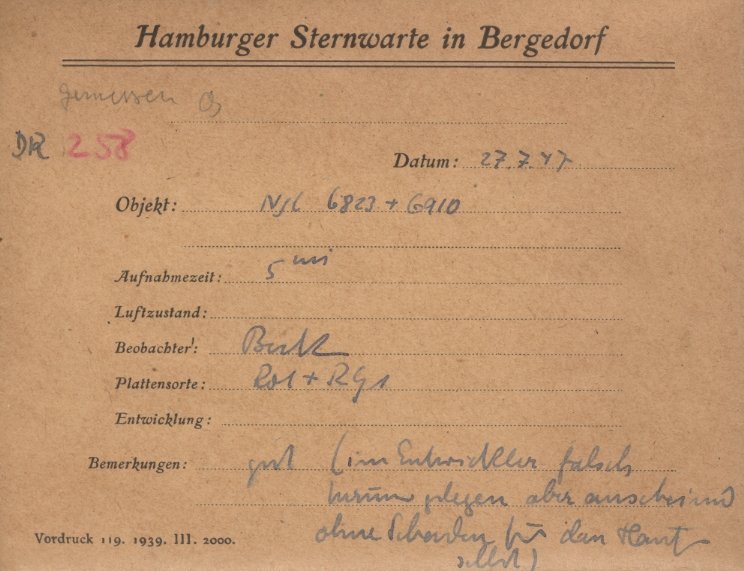 Hamburger Sternwarte in Bergedorf
gemessen
DR 258
Datum: 27.7.47
Objekt: NGC 6823 + 6910
Aufnahmezeit: 5 min
Luftzustand:
Beobachter:
Plattensorte: Rot + RG1
Entwicklung:
Bemerkungen: gut (im Entwickler falsch
herum gelegen aber anscheinend
ohne Schaden für den
selbst)
Vordruck 119. 1939. III. 2000.